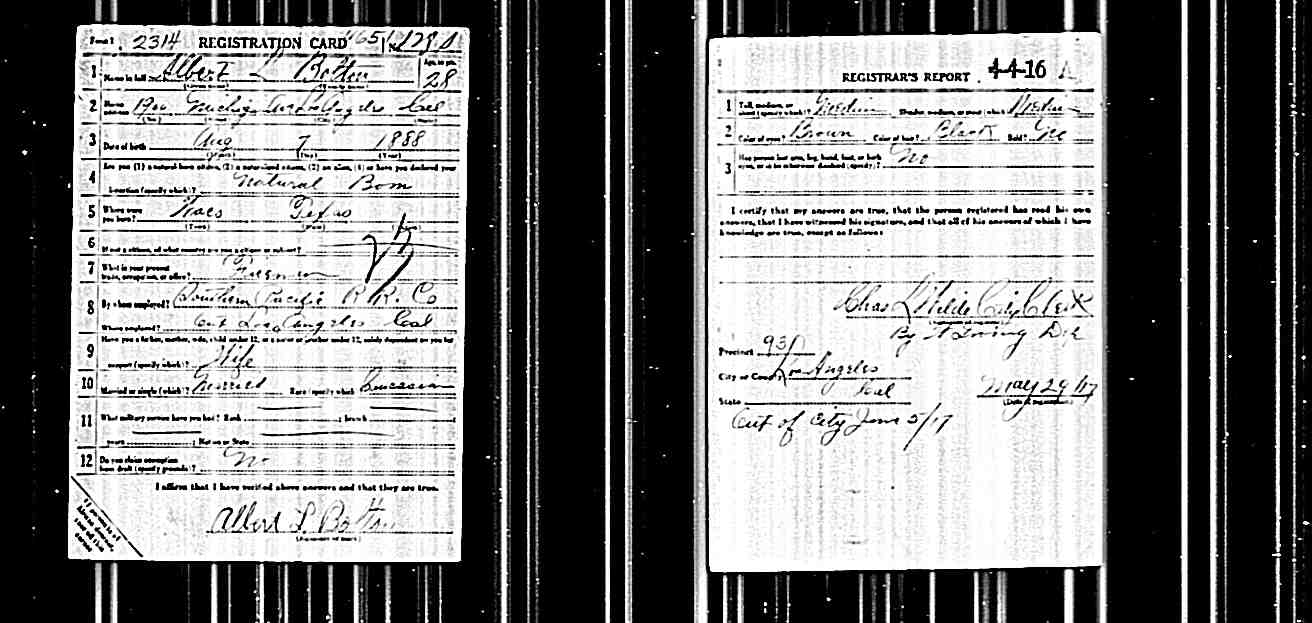 Form 1 2314 REGISTRATION CARD 165 No. 178
1 Name in full Albert L Bolton Age, in yrs. 28
(Given name) (Family name)
2 Home address 1900 Michigan Los Angeles Cal
3 Date of birth Aug 7 1888
(Month) (Day) (Year)
4 Are you (1) a natural-born citizen, (2) a naturalized citizen, (3) an alien, (4) or have you declared your
intention (specify which)? Natural Born
5 Where were you born? Waco Texas
(Town) (State)
6 If not a citizen, of what country are you a citizen or subject?
7 What is your present trade, occupation, or office? Fireman
8 By whom employed? Southern Pacific R.R. Co
Where employed? Los Angeles Cal
9 Have you a father, mother, wife, child under 12, or a sister or brother under 12, solely dependent on you for
support (specify which)? Wife
10 Married or single (which)? Married Race (specify which)? Caucasian
11 What military service have you had? Rank ; branch ;
years ; Nation or State
12 Do you claim exemption from draft (specify grounds)? No
I affirm that I have verified above answers and that they are true.
Albert L. Bolton
(Signature or mark)
REGISTRAR'S REPORT 4-4-16 A
1 Tall, medium, or short (specify which)? Medium Slender, medium, or stout (which)? Medium
2 Color of eyes? Brown Color of hair? Black Bald? No
3 Has person lost arm, leg, hand, foot, or both eyes, or is he otherwise disabled (specify)? No
I certify that my answers are true, that the person registered has read his own
answers, that I have witnessed his signature, and that all of his answers of which I have
knowledge are true, except as follows:
Chas L Wilde City Clerk
(Signature of registrar)
By Irving
Precinct 93
City or County Los Angeles
State Cal May 29/17
(Date of registration)
Out of City June 5/17